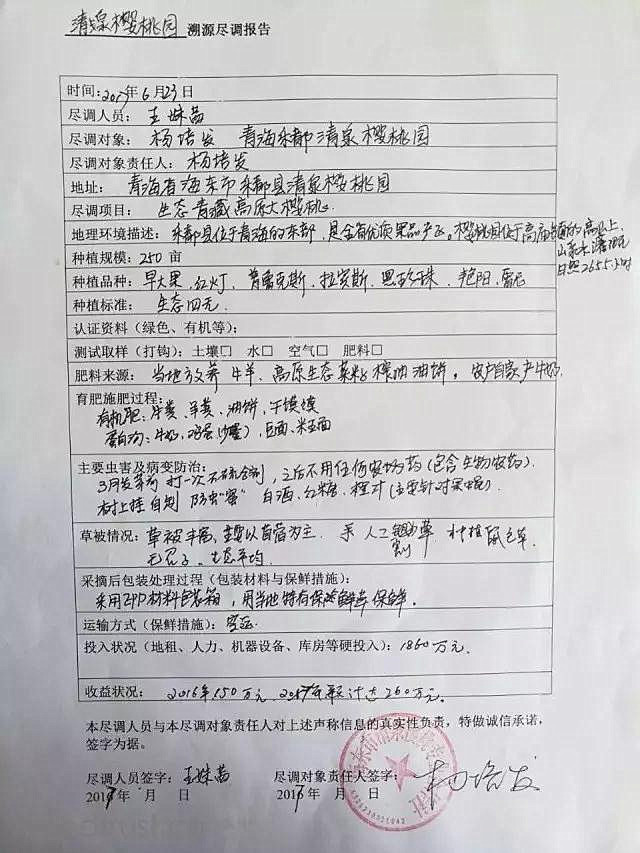 清泉樱桃园 溯源尽调报告
时间：2017年6月23日
尽调人员：王姝茵
尽调对象：杨培发 青海乐都清泉樱桃园
尽调对象责任人：杨培发
地址：青海省海东市乐都县清泉樱桃园
尽调项目：生态青藏高原大樱桃
地理环境描述：乐都县位于青海的东部，是全省优质果品产区。樱桃园位于高庙镇的高原上
山泉水灌溉
日照2655小时
种植规模：250亩
种植品种：早大果，红灯，首鲁克斯，拉宾斯，黑珍珠，艳阳，雷尼
种植标准：生态四无
认证资料（绿色、有机等）：
测试取样（打钩）：土壤□ 水□ 空气□ 肥料□
肥料来源：当地放养牛羊、高原生态菜籽榨油油饼，农户自家产牛奶
育肥施肥过程：
有机肥：牛粪、羊粪、油饼、干馍馍
蛋白沟：牛奶，鸡蛋，豆面、米玉面
主要虫害及病变防治：
3月发芽前打一次石硫合剂，之后不用任何农药（包含生物农药）
树上挂自制防虫"蜜" 白酒、红糖、（主要针对果蝇）
草被情况：草被丰富，主要以苜蓿为主。 人工锄草 种植鼠毛草
割
生态平均
采摘后包装处理过程（包装材料与保鲜措施）：
采用EPP材料包装箱，用当地特有保鲜
运输方式（保鲜措施）：空运
投入状况（地租、人力、机器设备、库房等硬投入）：1860万元
收益状况：2016年150万元 2017年预计达260万元
本尽调人员与本尽调对象责任人对上述声称信息的真实性负责，特做诚信承诺，
签字为据。
尽调人员签字：王姝茵 尽调对象责任人签字：杨培发
2017年 月 日 2017年 月 日